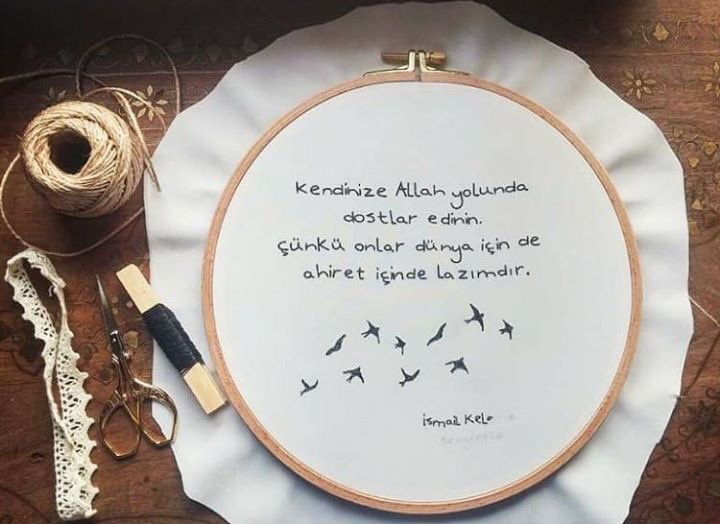 Kendinize Allah yolunda
dostlar edinin.
Çünkü onlar dünya için de
ahiret içinde lazımdır.
ismail